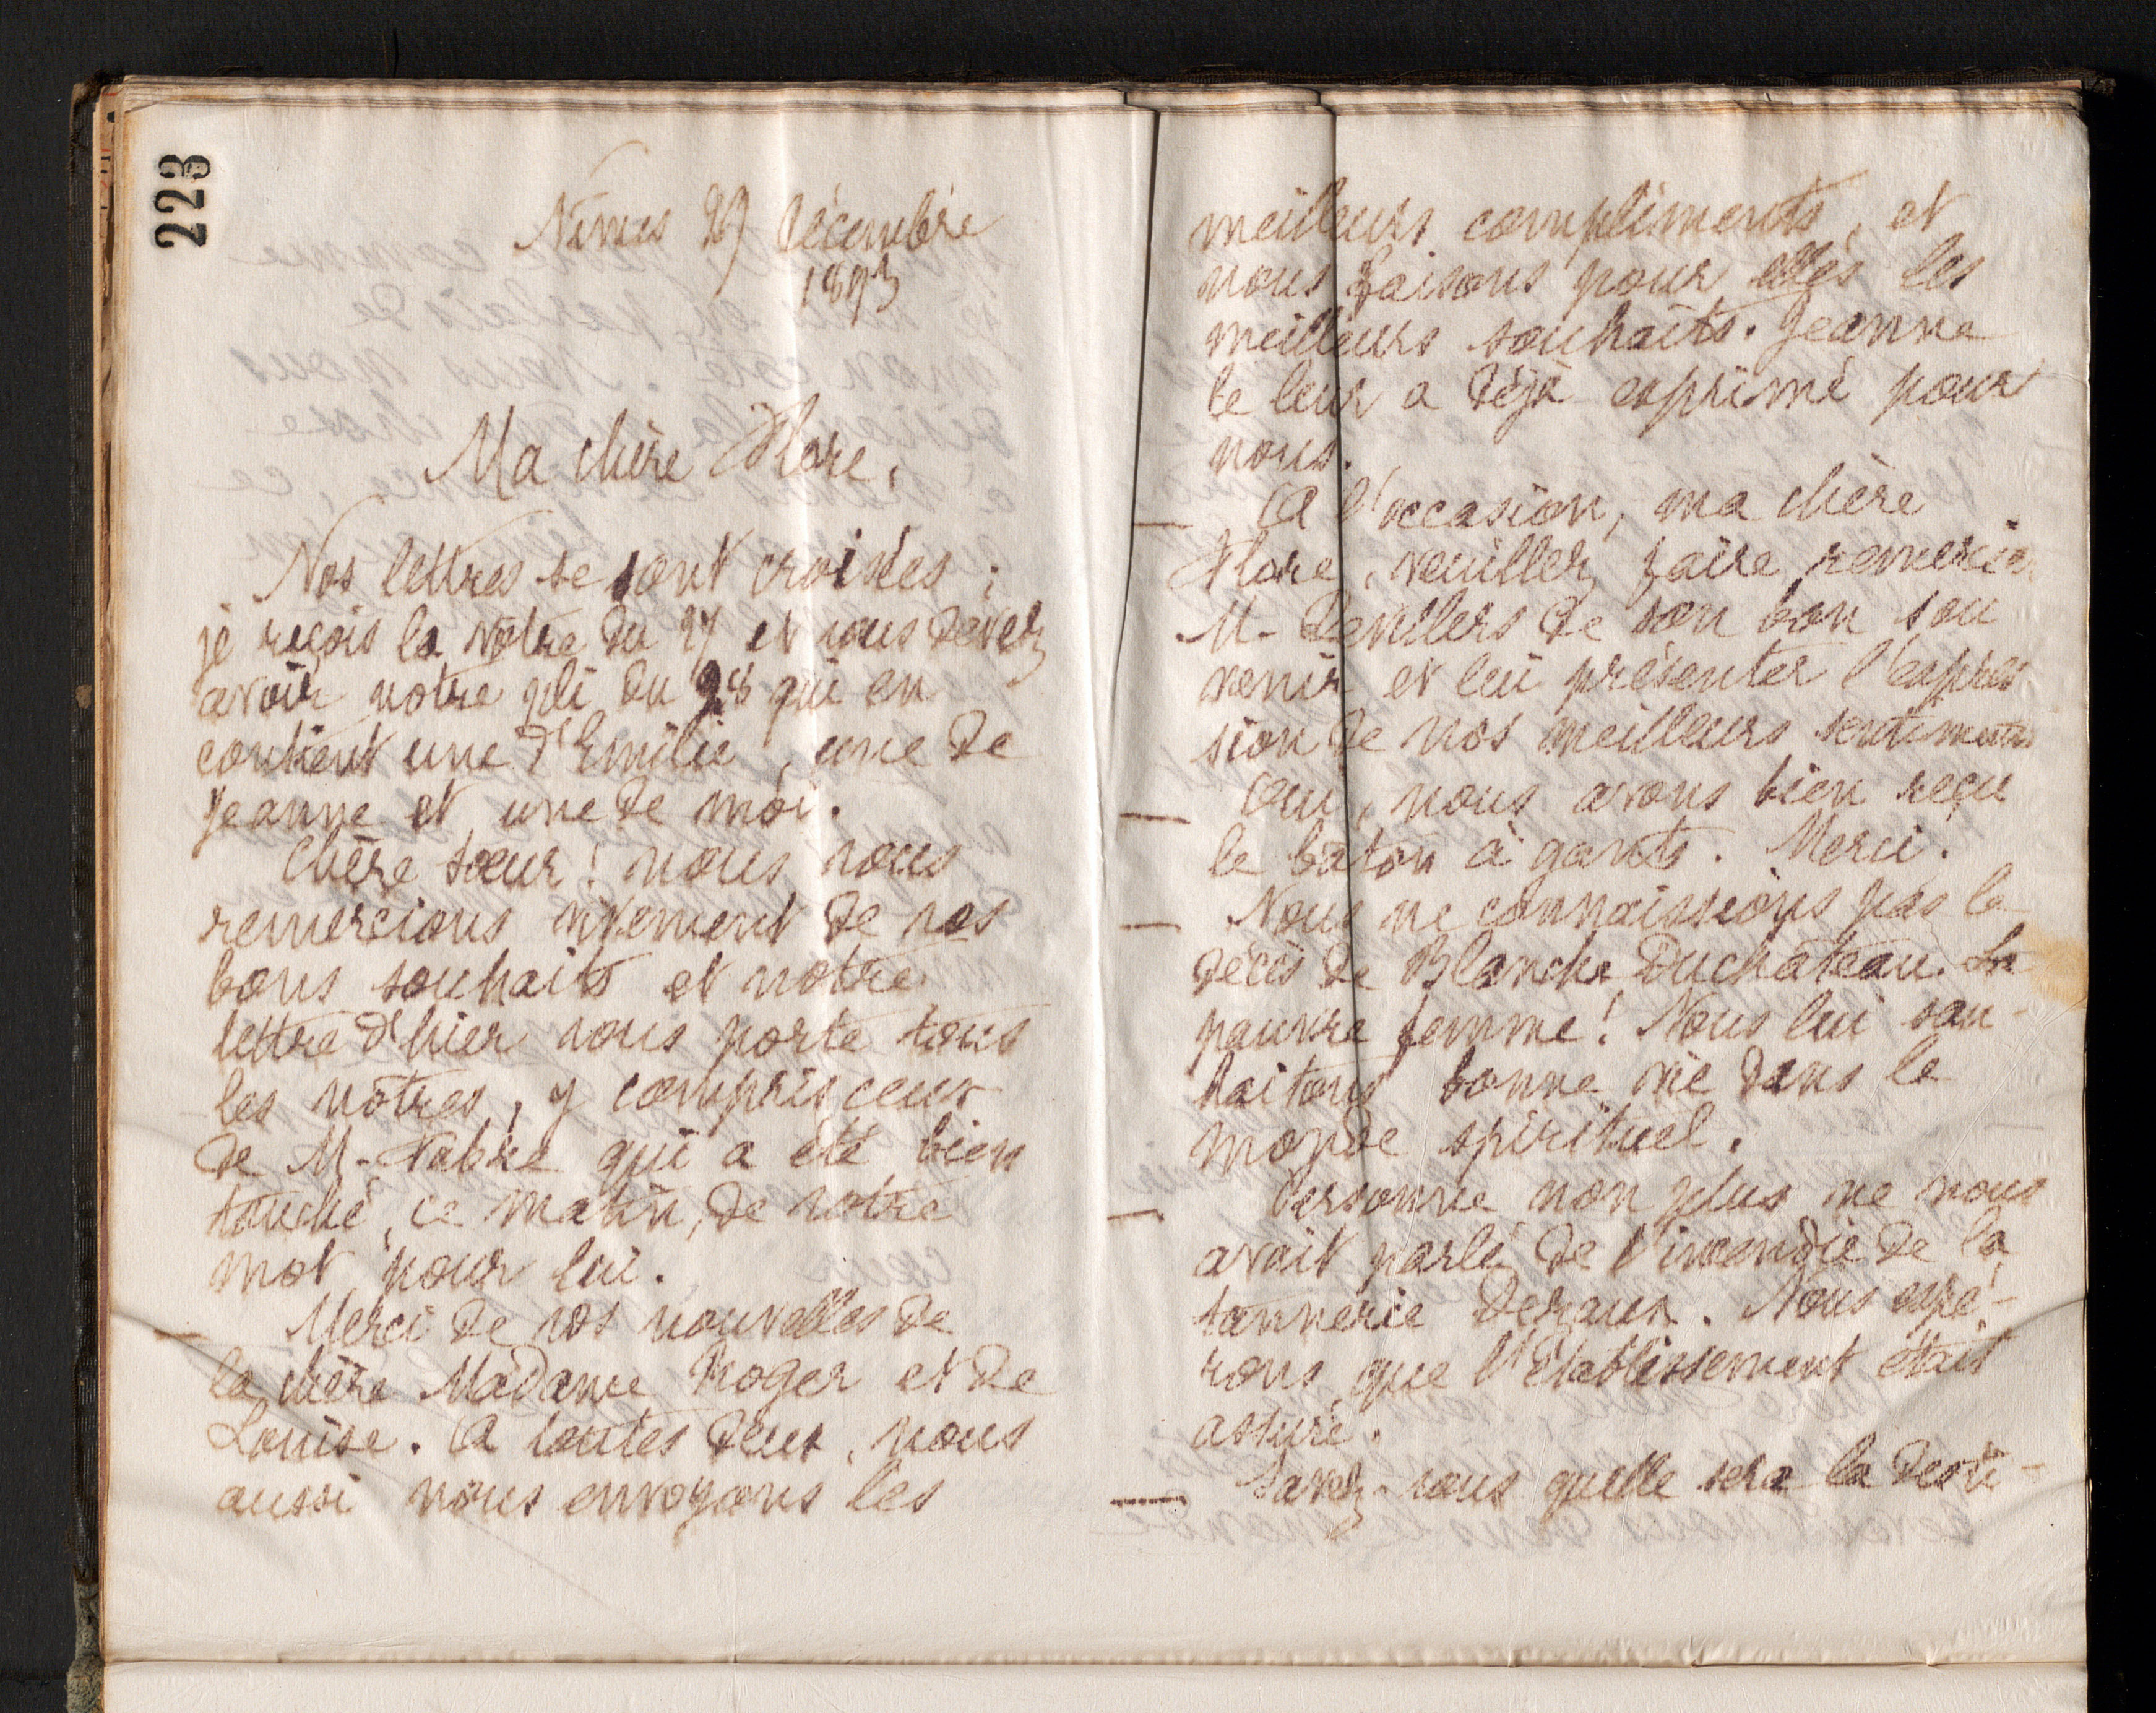 223
Nîmes 29 décembre
1893
Ma chère Flore,
Nos lettres se sont croisées ;
je reçois la vôtre du 27 et vous devez
avoir notre pli du 28 qui en
contient une d'Emilie, une de
Jeanne et une de moi.
Chère sœur ! nous vous
remercions vivement de vos
bons souhaits et notre
lettre d'hier vous porte tous
les nôtres, y compris ceux
de M. Fabre qui a été bien
touché, ce matin, de votre
mot pour lui.
Merci de vos nouvelles de
la chère Madame Roger et de
Louise. A toutes deux, nous
aussi nous envoyons les
meilleurs compliments, et
nous faisons pour elles les
meilleurs souhaits. Jeanne
le leur a déjà exprimé pour
nous.
— A l'occasion, ma chère
Flore, veuillez faire remercier
M. de son bon sou
venir et lui présenter l'expres
sion de nos meilleurs sentiments
— Oui, nous avons bien reçu
le bâton à gants. Merci.
— Nous ne connaissions pas le
décès de Blanche Duchâteau. La
pauvre femme ! Nous lui sou-
haitons bonne vie dans le
monde spirituel.
— Personne non plus ne nous
avait parlé de l'incendie de la
tannerie Deraux. Nous espé-
rons que l'Etablissement était
assuré.
— Savez-vous quelle sera la desti-